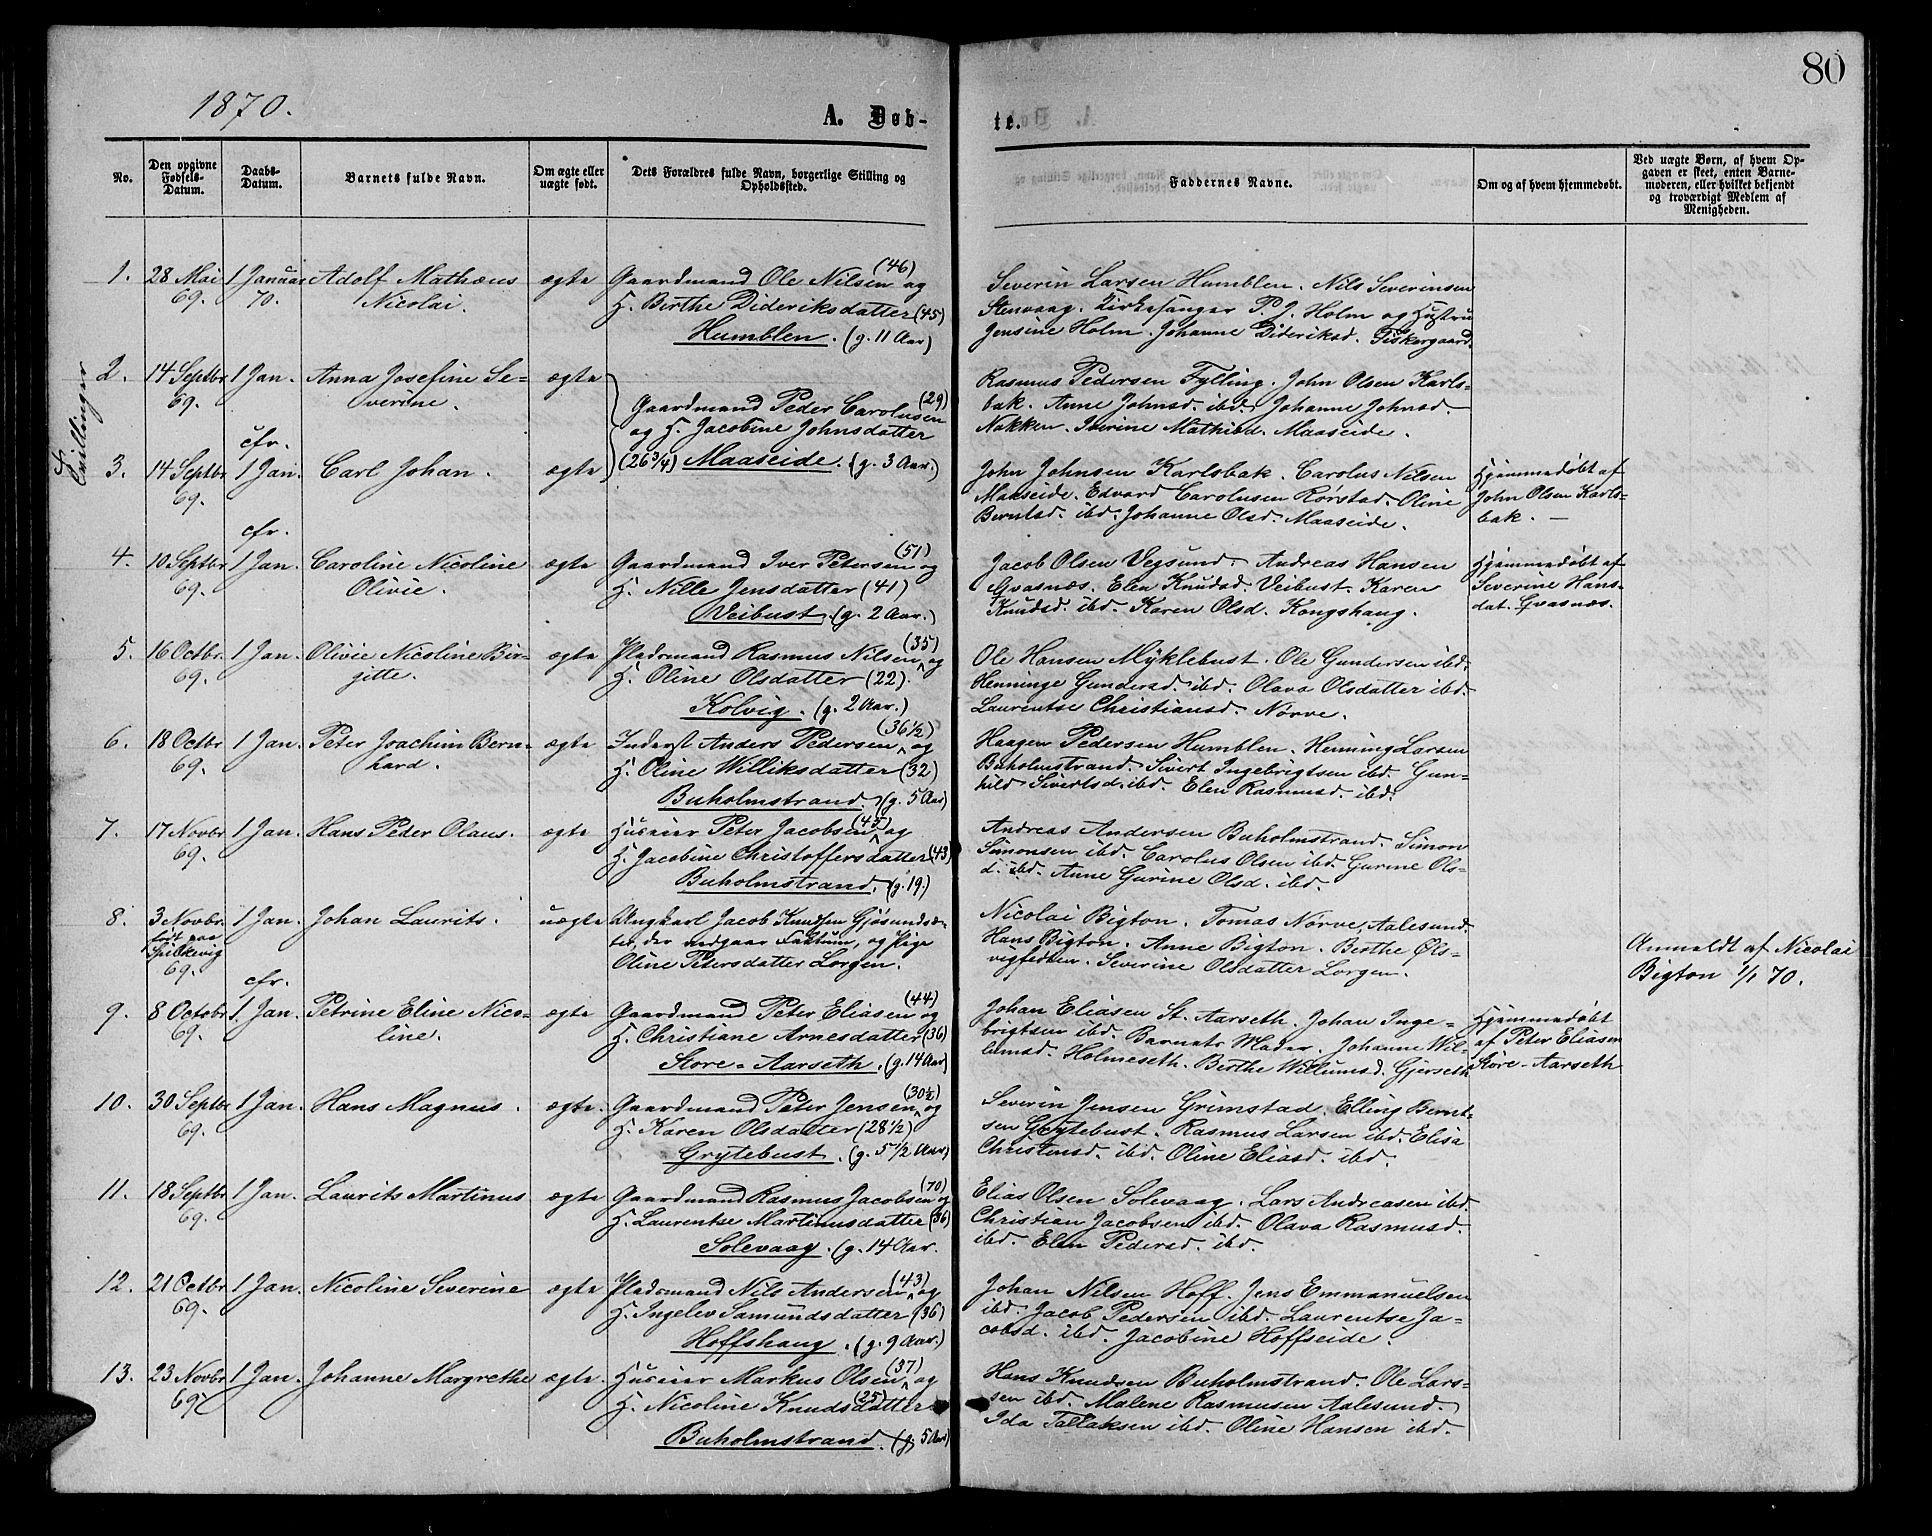 80
1870.
A. Døb-
te.
No.
Den opgivne
Fødsels-
Datum.
Daabs-
Datum.
Barnets fulde Navn.
Om ægte eller
uægte født.
Dets Forældres fulde Navn, borgerlige Stilling og
Opholdssted.
Faddernes Navne.
Om og af hvem hjemmedøbt.
Ved uægte Børn, af hvem Op-
gaven er skeet, enten Barne-
moderen, eller hvilket bekjendt
og troværdigt Medlem af
Menigheden.
1. 28 Mai 1 Januar Adolf Mathæus ægte Gaardmand Ole Nilsen (46) og
69. 70. Nicolai. H. Birthe Dideriksdatter (45)
Humblen. (g. 11 Aar)
Severin Larsen Humblen. Nils Severinsen
Stenvaag. Kirkesanger P. J. Holm og Hustru
Jensine Holm. Johanne Dideriksd. Fiskergaard.
Tvillinger
2. 14 Septbr 1 Jan. Anna Josefine Se- ægte
69. verine.
Gaardmand Peder Carolusen (29)
og H. Jacobine Johnsdatter
(26 3/4) Maaseide. (g. 3 Aar.)
Rasmus Pedersen Fylling. John Olsen Karls-
bak. Anne Johnsd. ibd. Johanne Johnsd.
Nakken. Iverine Mathisd. Maaseide.
cfr.
3. 14 Septbr 1 Jan. Carl Johan. ægte
69.
John Johnsen Karlsbak. Carolus Nilsen
Maaseide. Edvard Carolusen Rørstad. Oline
Berntsd. ibd. Johanne Olsd. Maaseide.
Hjemmedøbt af
John Olsen Karls-
bak. —
cfr.
4. 10 Septbr 1 Jan. Caroline Nicoline ægte Gaardmand Iver Petersen (51) og
69. Olivie. H. Nille Jensdatter (41)
Veibust. (g. 2 Aar.)
Jacob Olsen Vegsund. Andreas Hansen
Gvasnæs. Elen Knudsd. Veibust. Karen
Knudsd. ibd. Karen Olsd. Kongshaug.
Hjemmedøbt af
Severine Hans-
dat. Gvasnæs.
5. 16 Octbr. 1 Jan. Olivie Nicoline Bir- ægte Pladsmand Rasmus Nilsen (35) og
69. gitte. H. Oline Olsdatter (22).
Kolvig. (g. 2 Aar.)
Ole Hansen Myklebust. Ole Gundersen ibd.
Henninge Gundersd. ibd. Olava Olsdatter ibd.
Laurentse Christiansd. Nørve.
6. 18 Octbr. 1 Jan. Peter Joachim Bern- ægte Inderst Anders Pedersen (36 1/2) og
69. hard. H. Oline Williksdatter (32)
Buholmstrand. (g. 5 Aar)
Haagen Pedersen Humblen. Henning Larsen
Buholmstrand. Sivert Ingebrigtsen ibd. Gun-
hild Sivertsd. ibd. Elen Rasmusd. ibd.
7. 17 Novbr 1 Jan. Hans Peder Olaus. ægte Huseier Peter Jacobsen (45) og
69. H. Jacobine Christoffersdatter (43)
Buholmstrand. (g. 19.)
Andreas Andersen Buholmstrand. Simon
Simonsen ibd. Carolus Olsen ibd. Gurine Ols-
d. ibd. Anne Gurine Olsd. ibd.
8. 3 Novbr. 1 Jan. Johan Laurits. uægte Ungkarl Jacob Knudsen Gjøsundsæ-
født paa ter, der vedgaar Factum, og Pige
Spilkevig Oline Petersdatter Lorgen.
69.
Nicolai Bigton. Tomas Nørve, Aalesund.
Hans Bigton. Anne Bigton. Berthe Øls-
vigfedten. Severine Olsdatter Lorgen.
Anmeldt af Nicolai
Bigton 1/1 70.
cfr.
9. 8 Octobr 1 Jan. Petrine Eline Nico- ægte Gaardmand Peter Eliasen (44) og
69. line. H. Christiane Arnesdatter (36)
Store-Aarseth. (g. 14 Aar)
Johan Eliasen St. Aarseth. Johan Inge-
brigtsen ibd. Barnets Moder. Johanne Wil-
lumsd. Holmeseth. Berthe Willumsd. Gjerseth
Hjemmedøbt
af Peter Eliasen
Store-Aarseth
10. 30 Septbr 1 Jan. Hans Magnus. ægte. Gaardmand Peter Jensen (30 1/2) og
69. H. Karen Olsdatter (28 1/2)
Grytebust. (g. 5 1/2 Aar)
Severin Jensen Grimstad. Elling Bernt-
sen Grytebust. Rasmus Larsen ibd. Elisa
Christensd. ibd. Oline Eliasd. ibd.
11. 18 Septbr 1 Jan. Laurits Martinus ægte Gaardmand Rasmus Jacobsen (70) og
69. H. Laurentse Martinusdatter (36)
Solevaag. (g. 14 Aar.
Elias Olsen Solevaag. Lars Andreasen ibd.
Christian Jacobsen ibd. Olava Rasmusd.
ibd. Elen Pedersd. ibd.
12. 21 Octbr 1 Jan. Nicoline Severine ægte Pladsmand Nils Andersen (43) og
69. H. Ingelev Samundsdatter (36)
Hoffshaug. (g. 9 Aar.)
Johan Nilsen Hoff. Jens Emmanuelsen
ibd. Jacob Pedersen ibd. Laurentse Ja-
cobsd. ibd. Jacobine Hoffseide.
13. 23 Novbr 1 Jan. Johanne Margrethe ægte. Huseier Markus Olsen (37) og
69 H. Nicoline Knudsdatter (25)
Buholmstrand. (g. 5 Aar)
Hans Knudsen Buholmstrand. Ole Lars-
sen ibd. Malene Rasmusen Aalesund.
Ida Tallaksen ibd. Oline Hansen ibd.